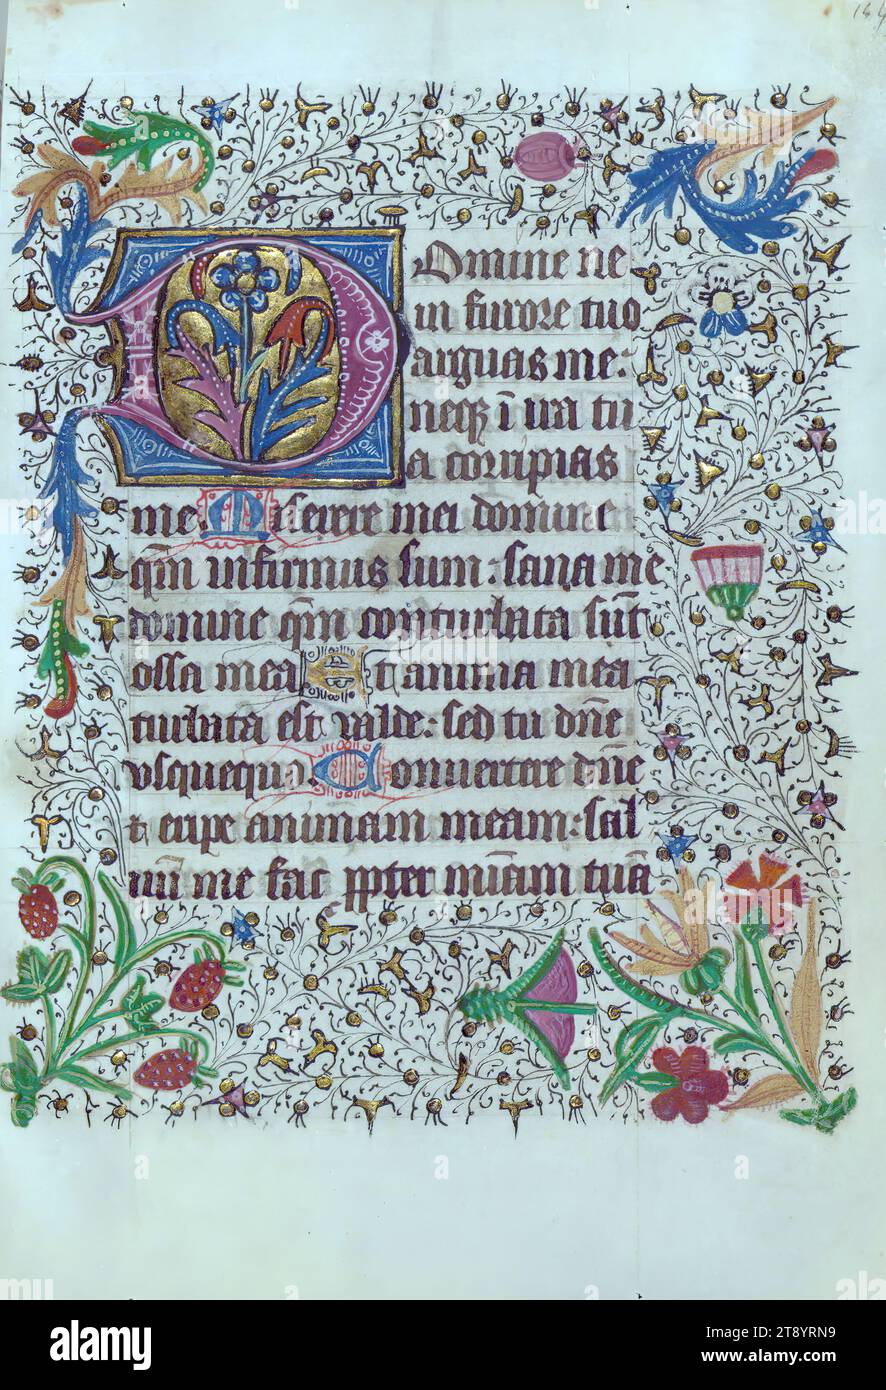 164
Domine ne
in furore tuo
arguas me:
neqꝫ ī ira tu
a corripias
me Miserere mei domine
qm̄ infirmus sum: sana me
domine qm̄ conturbata sūt
ossa mea Et anima mea
turbata est valde: sed tu dn̄e
vsquequo Conuertere dn̄e
⁊ eripe animam meam: sal
uū me fac ꝓpter mīam tuā
alamy
Image ID: 2T8YRN9
www.alamy.com